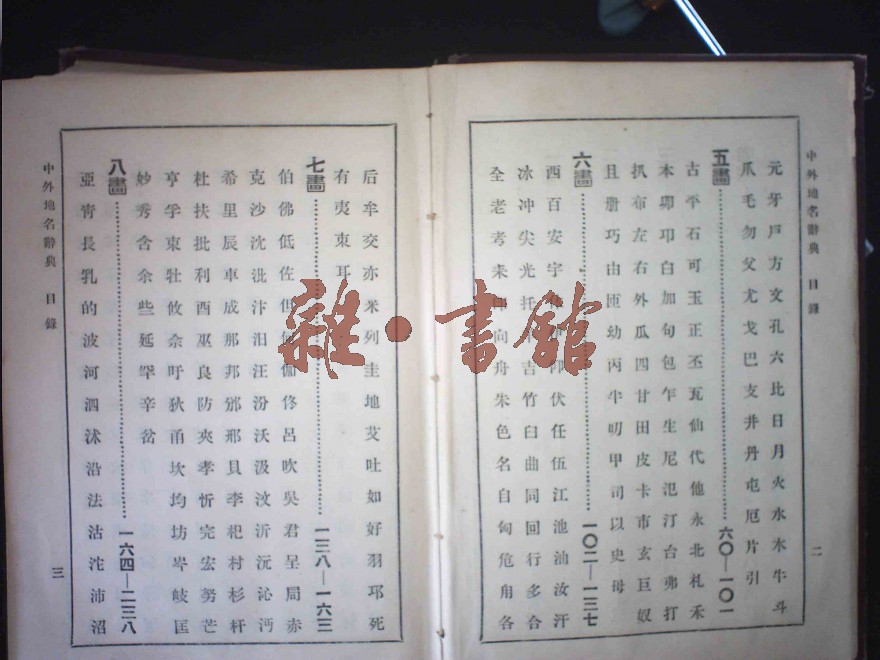 中外地名辭典 目錄
二
元牙戶方文孔六比日月火水木牛斗
爪毛勿父尤戈巴支井丹屯厄片引
五畫 六〇—一〇一
古平石可玉正丕瓦仙代他永北札禾
本卯邛白加句包乍生尼氾汀台弗打
扒布左右外瓜四甘田皮卡市玄巨奴
且册巧由匝幼丙半叨甲司以史母
六畫 一〇二—一三七
西百安宇 伏任伍江池油汝汗
冰冲尖光托 吉竹臼曲同回行多合
全老考耒 向舟朱色名自匈危甪各
后牟交亦米列圭地艾吐如好羽邛死
有夷朿耳
七畫 一三八—一六三
伯佛低佐但 伽佟呂吹吳君呈局赤
克沙沈沘汴汨汪汾沃汲汶沂沅沁沔
希里辰車成那邦邠邢貝李杞村杉杆
杜扶批利酉巫良防夾孝忻完宏努芒
亨孚束牡攸余盱狄甬坎均坊岑岐匡
妙秀含余些延罕辛岔
八畫 一六四—二三八
亞靑長乳的波河泗沭沿法沽沱沛沼
中外地名辭典 目錄
三
雜·書館